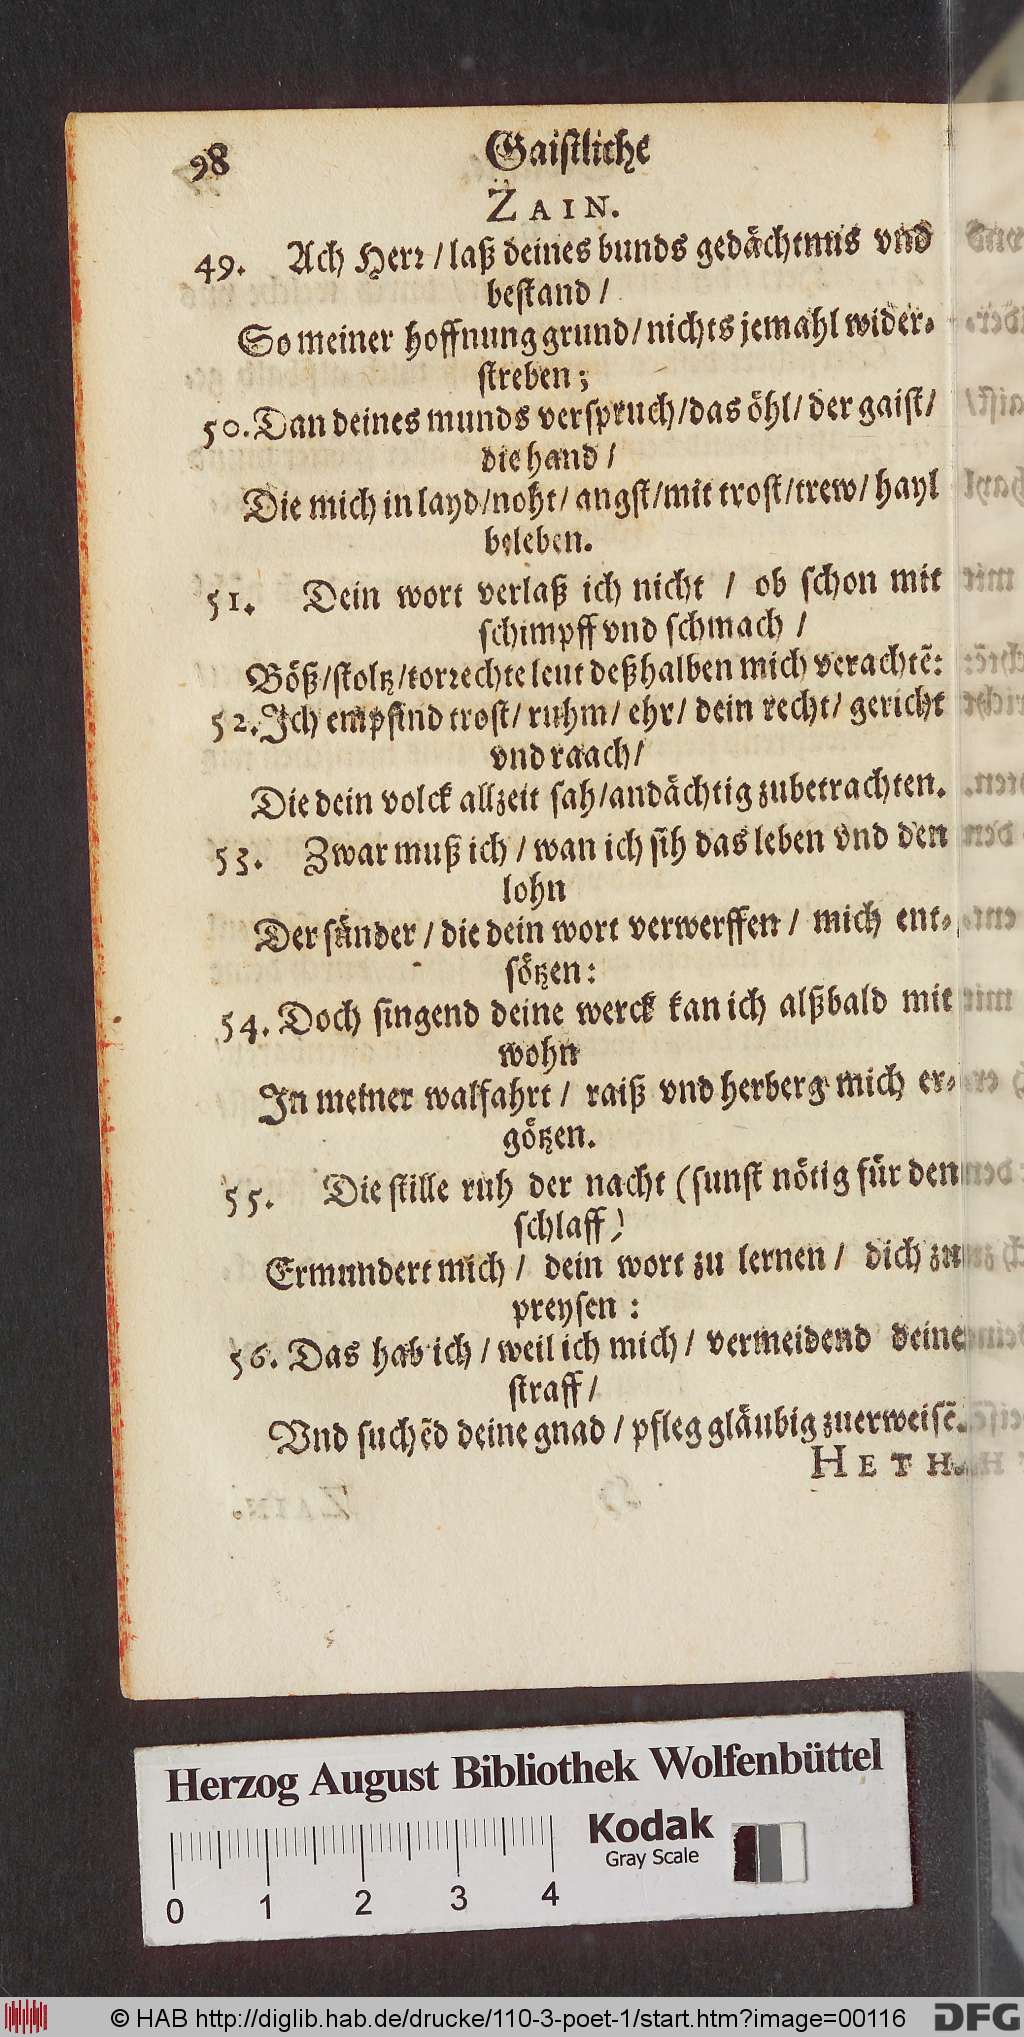 98 Gaistliche
ZAIN.
49. Ach Herr / laß deines bunds gedächtnus vnd
bestand /
So meiner hoffnung grund / nichts jemahl wider-
streben ;
50. Dan deines munds verspruch / das öhl / der gaist /
die hand /
Die mich in layd / noht / angst / mit trost / trew / hayl
beleben.
51. Dein wort verlaß ich nicht / ob schon mit
schimpff vnd schmach /
Böß / stoltz / torrechte leut deßhalben mich verachtẽ:
52. Ich empfind trost / ruhm / ehr / dein recht / gericht
vnd raach /
Die dein volck allzeit sah / andächtig zubetrachten.
53. Zwar muß ich / wan ich sih das leben vnd den
lohn
Der sünder / die dein wort verwerffen / mich ent-
sötzen :
54. Doch singend deine werck kan ich alßbald mit
wohn
In meiner walfahrt / raiß vnd herberg mich er-
götzen.
55. Die stille ruh der nacht (sunst nötig für den
schlaff)
Ermundert mich / dein wort zu lernen / dich zu
preysen :
56. Das hab ich / weil ich mich / vermeidend deine
straff /
Vnd suchẽd deine gnad / pfleg gläubig zuerweisẽ.
HETH.
Herzog August Bibliothek Wolfenbüttel
Kodak
Gray Scale
0 1 2 3 4
© HAB http://diglib.hab.de/drucke/110-3-poet-1/start.htm?image=00116 DFG